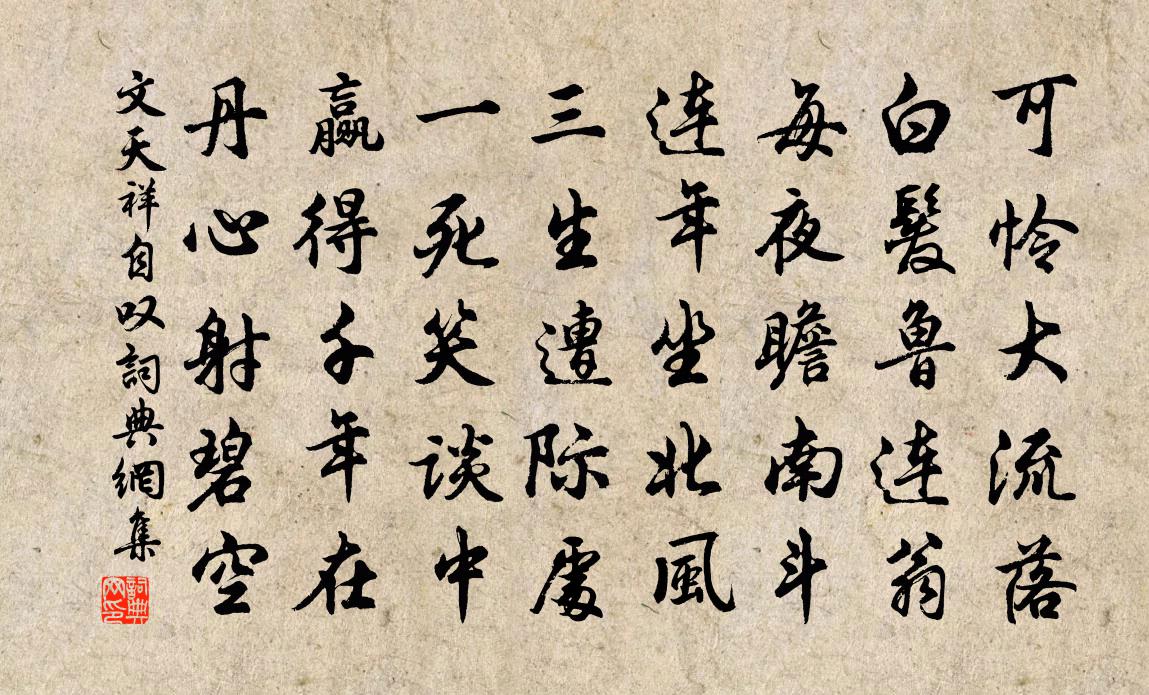 可怜大流落
白髮鲁连翁
每夜瞻南斗
连年坐北風
三生遭际處
一死笑谈中
赢得千年在
丹心射碧空
文天祥自叹詞典網集
詞典网印